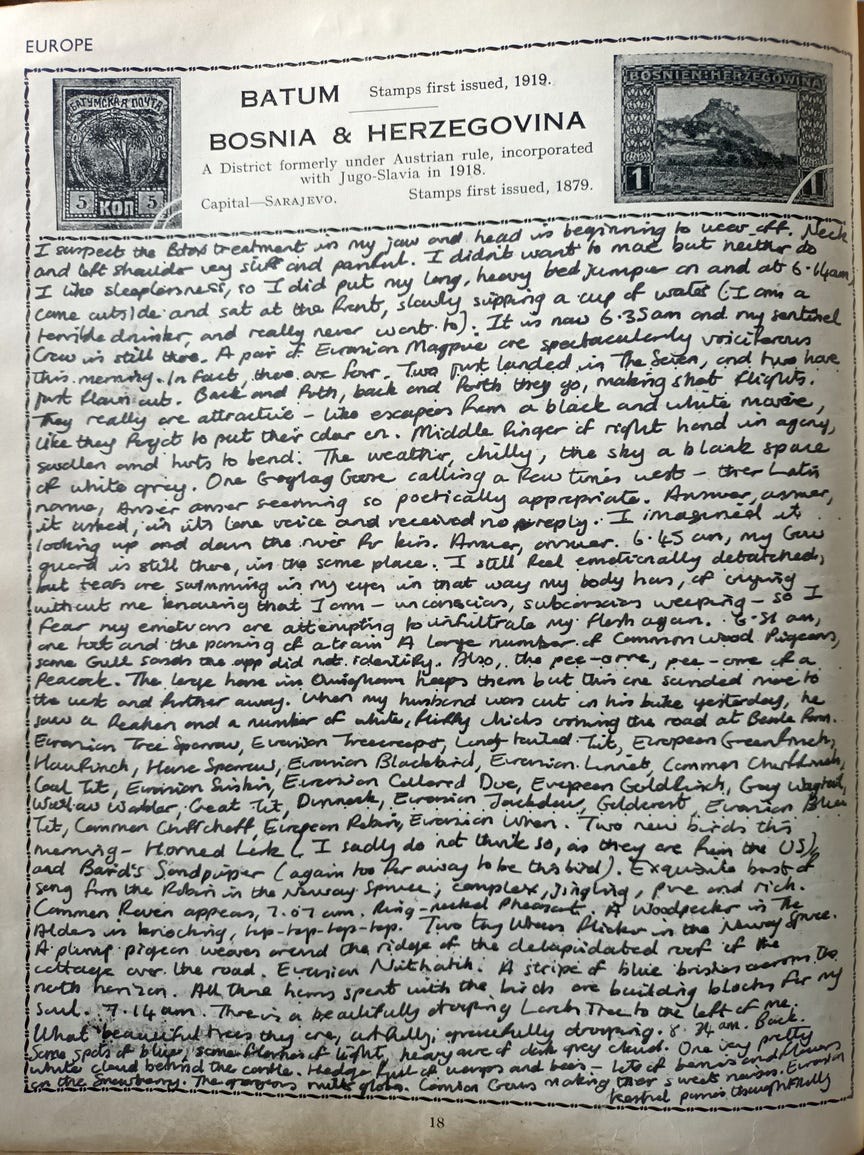 EUROPE
БАТУМСКАЯ ПОЧТА
5 КОП 5
BATUM Stamps first issued, 1919.
BOSNIA & HERZEGOVINA
A District formerly under Austrian rule, incorporated
with Jugo-Slavia in 1918.
Capital—SARAJEVO. Stamps first issued, 1879.
BOSNIEN-HERZEGOVINA
1 1
I suspect the Botox treatment in my jaw and head is beginning to wear off. Neck
and left shoulder very stiff and painful. I didn't want to move but neither do
I like sleeplessness, so I did put my long, heavy bed jumper on and at 6.14am,
came outside and sat at the front, slowly sipping a cup of water (I am a
terrible drinker, and really never want to). It is now 6.35am and my sentinel
Crow is still there. A pair of Eurasian Magpie are spectacularly voiciferous
this morning. In fact, there are four. Two just landed in The Seven, and two have
just flown out. Back and forth, back and forth they go, making short flights.
They really are attractive – like escapees from a black and white movie,
like they forgot to put their color on. Middle finger of right hand in agony,
swollen and hurts to bend. The weather, chilly, the sky a blank space
of white grey. One Greylag Goose calling a few times west – their Latin
name, Anser anser seeming so poetically appropriate. Answer, answer,
it asked, in its lone voice and received no reply. I imagined it
looking up and down the river for kin. Answer, answer. 6.45 am, my Crow
guard is still there, in the same place. I still feel emotionally detached,
but tears are swimming in my eyes in that way my body has, of crying
without me knowing that I am – unconscious, subconscious weeping – so I
fear my emotions are attempting to infiltrate my flesh again. 6.51 am,
one toot and the passing of a train. A large number of Common Wood Pigeons,
some Gull sounds the app did not identify. Also, the pee-orre, pee-orre of a
Peacock. The large house in keeps them but this one sounded more to
the west and further away. When my husband was out on his bike yesterday, he
saw a Peahen and a number of white, fluffy chicks crossing the road at Farm.
Eurasian Tree Sparrow, Eurasian Treecreeper, Long-tailed Tit, European Greenfinch,
Hawfinch, House Sparrow, Eurasian Blackbird, Eurasian Linnet, Common Chaffinch,
Coal Tit, Eurasian Siskin, Eurasian Collared Dove, European Goldfinch, Grey Wagtail,
Willow Warbler, Great Tit, Dunnock, Eurasian Jackdaw, Goldcrest, Eurasian Blue
Tit, Common Chiffchaff, European Robin, Eurasian Wren. Two new birds this
morning – Horned Lark (I sadly do not think so, as they are from the US),
and Baird's Sandpiper (again too far away to be this bird). Exquisite burst of
song from the Robin in the Norway Spruce; complex, jingling, pure and rich.
Common Raven appears, 7.07 am. Ring-necked Pheasant. A Woodpecker in The
Alders is knocking, tap-tap-tap-tap. Two tiny Wrens flicker in the Norway Spruce.
A plump pigeon weaves around the ridge of the delapidated roof of the
cottage over the road. Eurasian Nuthatch. A stripe of blue brushes across the
north horizon. All three hours spent with the birds are building blocks for my
soul. 7.14 am. There is a beautifully drooping Larch Tree to the left of me.
What beautiful trees they are, artfully, gracefully drooping. 8.24 am. Back.
Some spots of blue, some flashes of light, heavy arc of dark grey cloud. One very pretty
white cloud behind the castle. Hedge full of wasps and bees – lots of berries and flowers
on the Snowberry. The gorgeous milk globes. Carrion Crows making their sweet noises. Eurasian
Kestrel thoughtfully
18